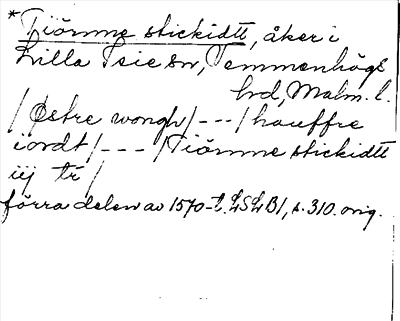 *Tiörnne stickidtt, åker i
Lilla Isie sn, Vemmenhögs
hd, Malm. l.
/Østre wongh/---/hauffre
iordt/---/Tiörnne stickidtt
iij tr/
förra delen av 1570-t. LSLB1, s. 310. orig.